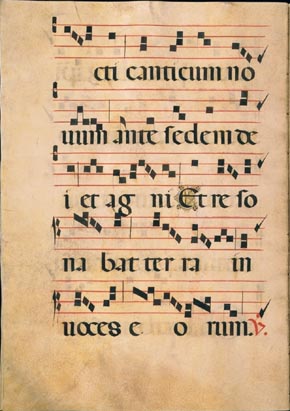 cti canticum no
uum ante sedem de
i et ag ni Et re so
na bat ter ra in
uoces e o rum. V.